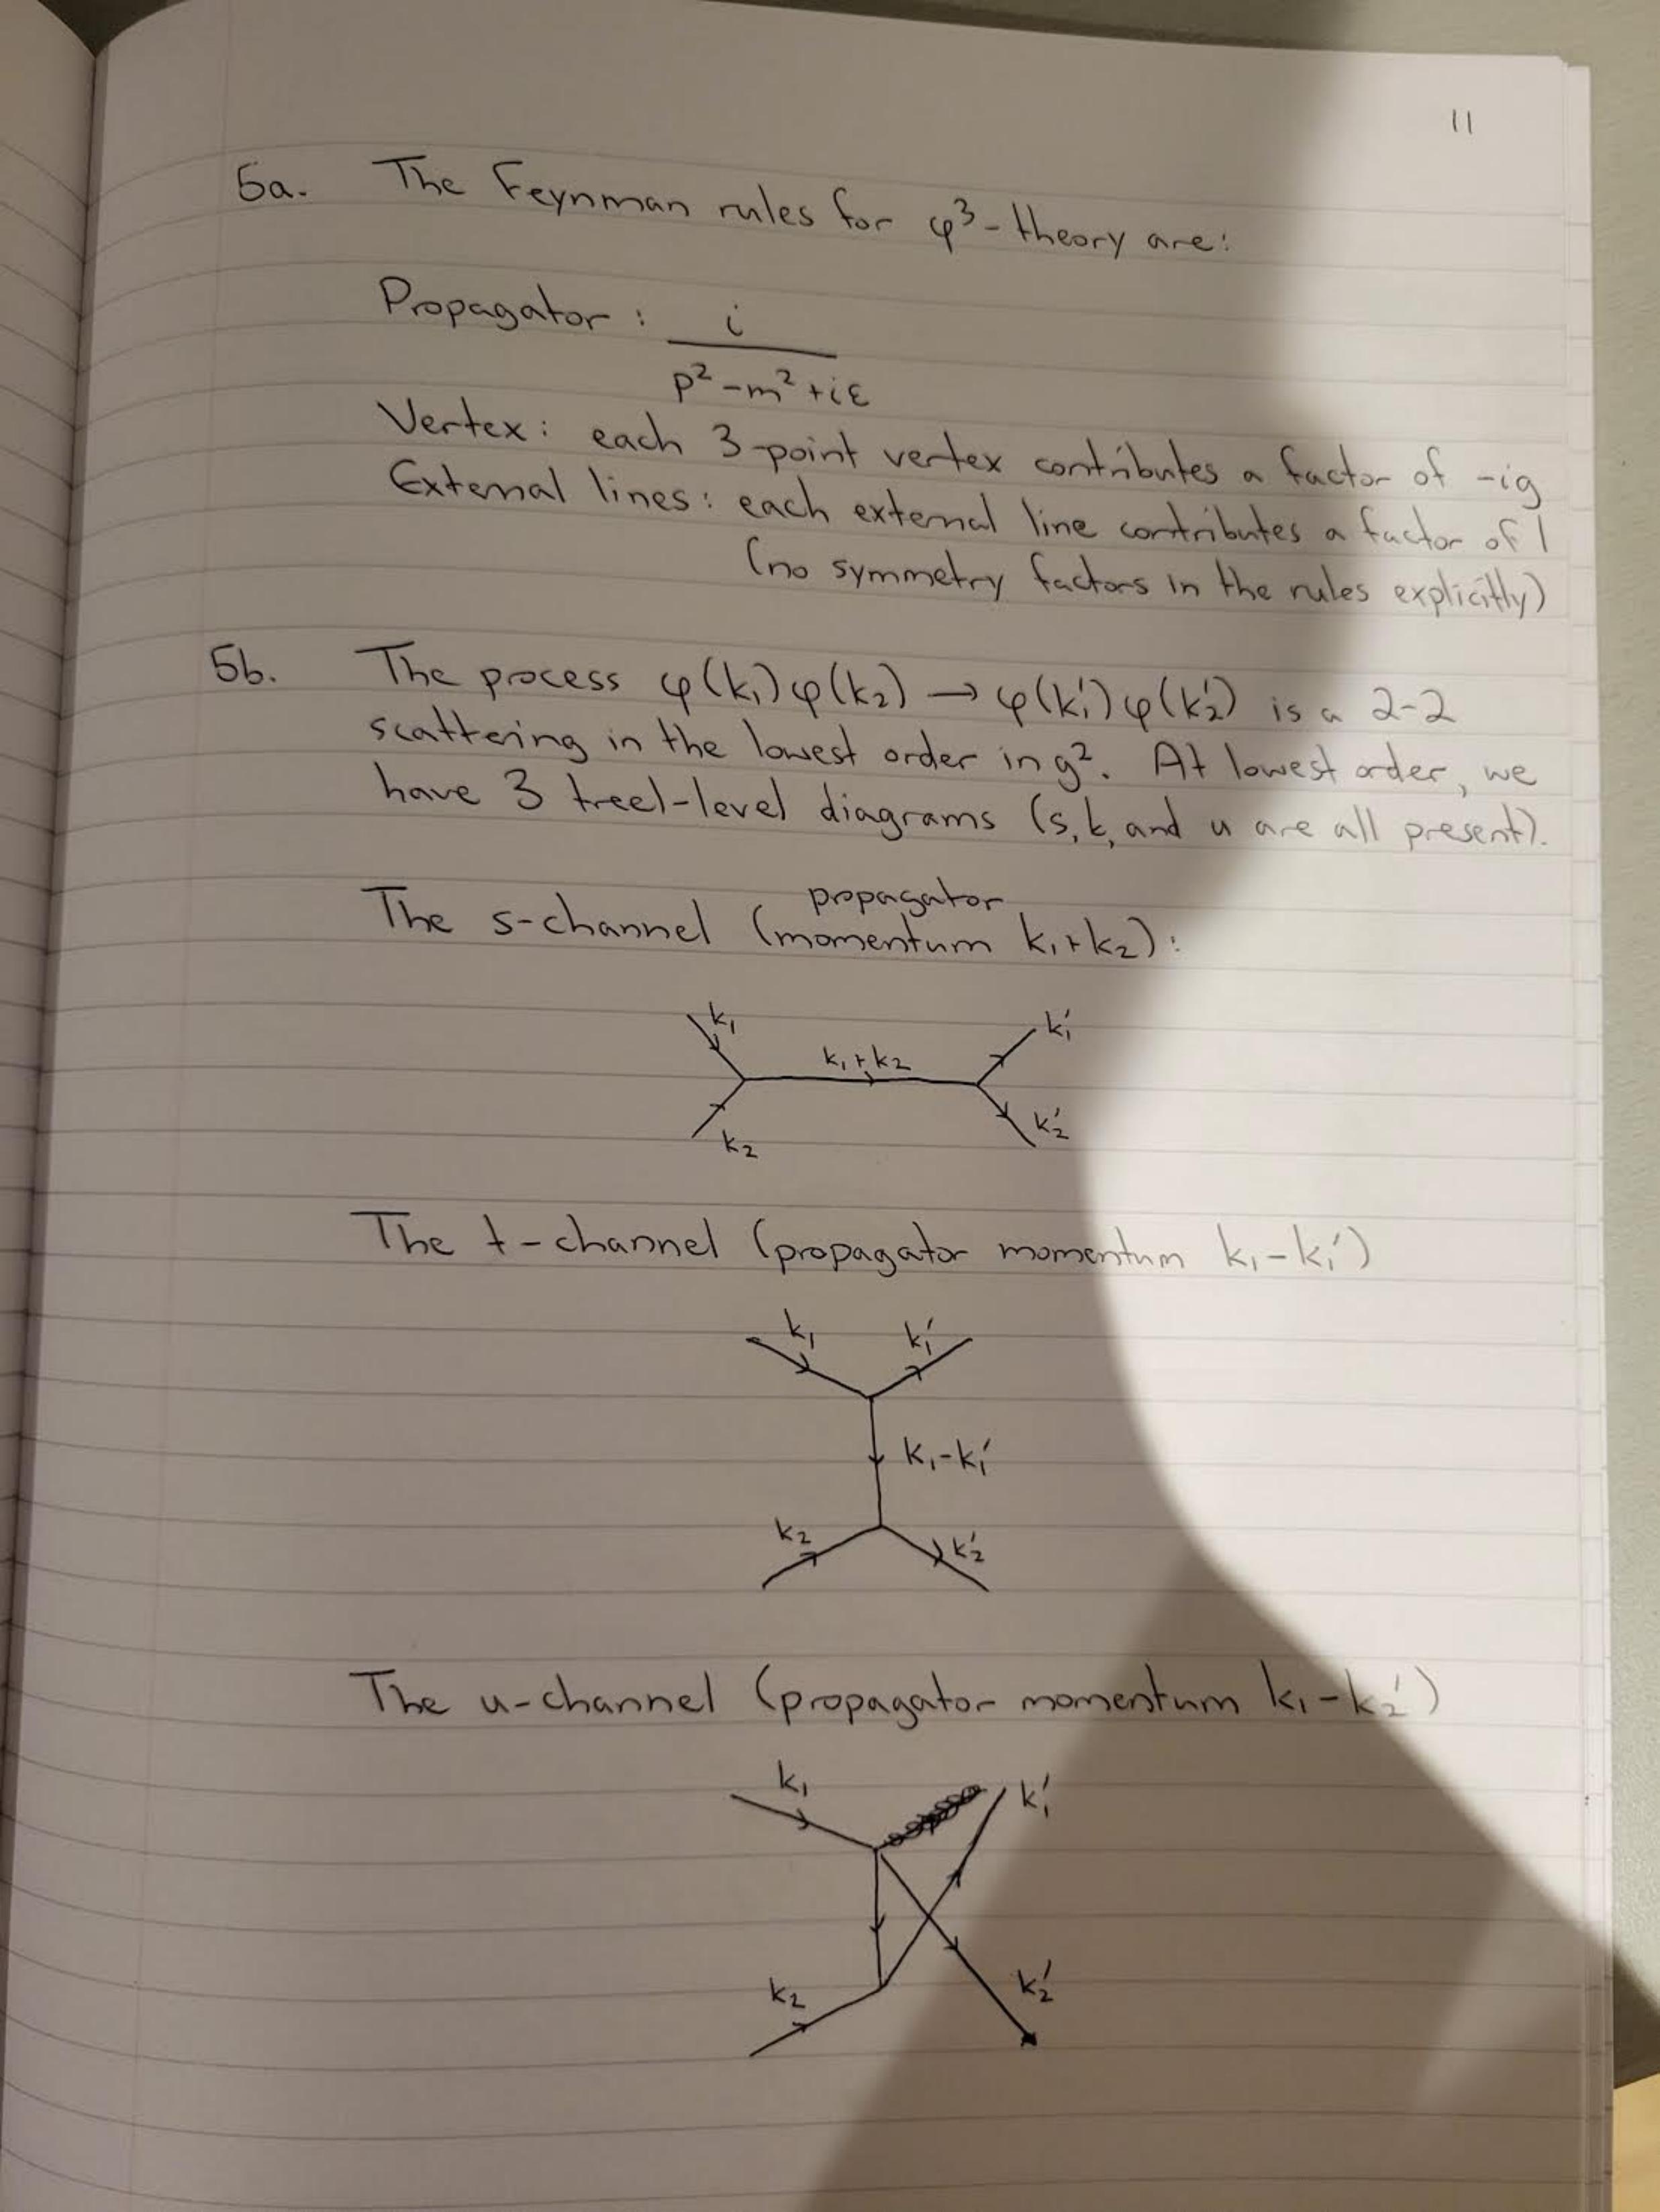 11
5a. The Feynman rules for φ³-theory are:
Propagator: i
p²-m²+iε
Vertex: each 3-point vertex contributes a factor of -ig
External lines: each external line contributes a factor of 1
(no symmetry factors in the rules explicitly)
5b. The process φ(k₁)φ(k₂) → φ(k₁')φ(k₂') is a 2-2
scattering in the lowest order in g². At lowest order, we
have 3 treel-level diagrams (s, t, and u are all present).
propagator
The s-channel (momentum k₁+k₂):
k₁ k₁'
k₁+k₂
k₂ k₂'
The t-channel (propagator momentum k₁-k₁')
k₁ k₁'
k₁-k₁'
k₂ k₂'
The u-channel (propagator momentum k₁-k₂')
k₁ k₁'
k₂ k₂'